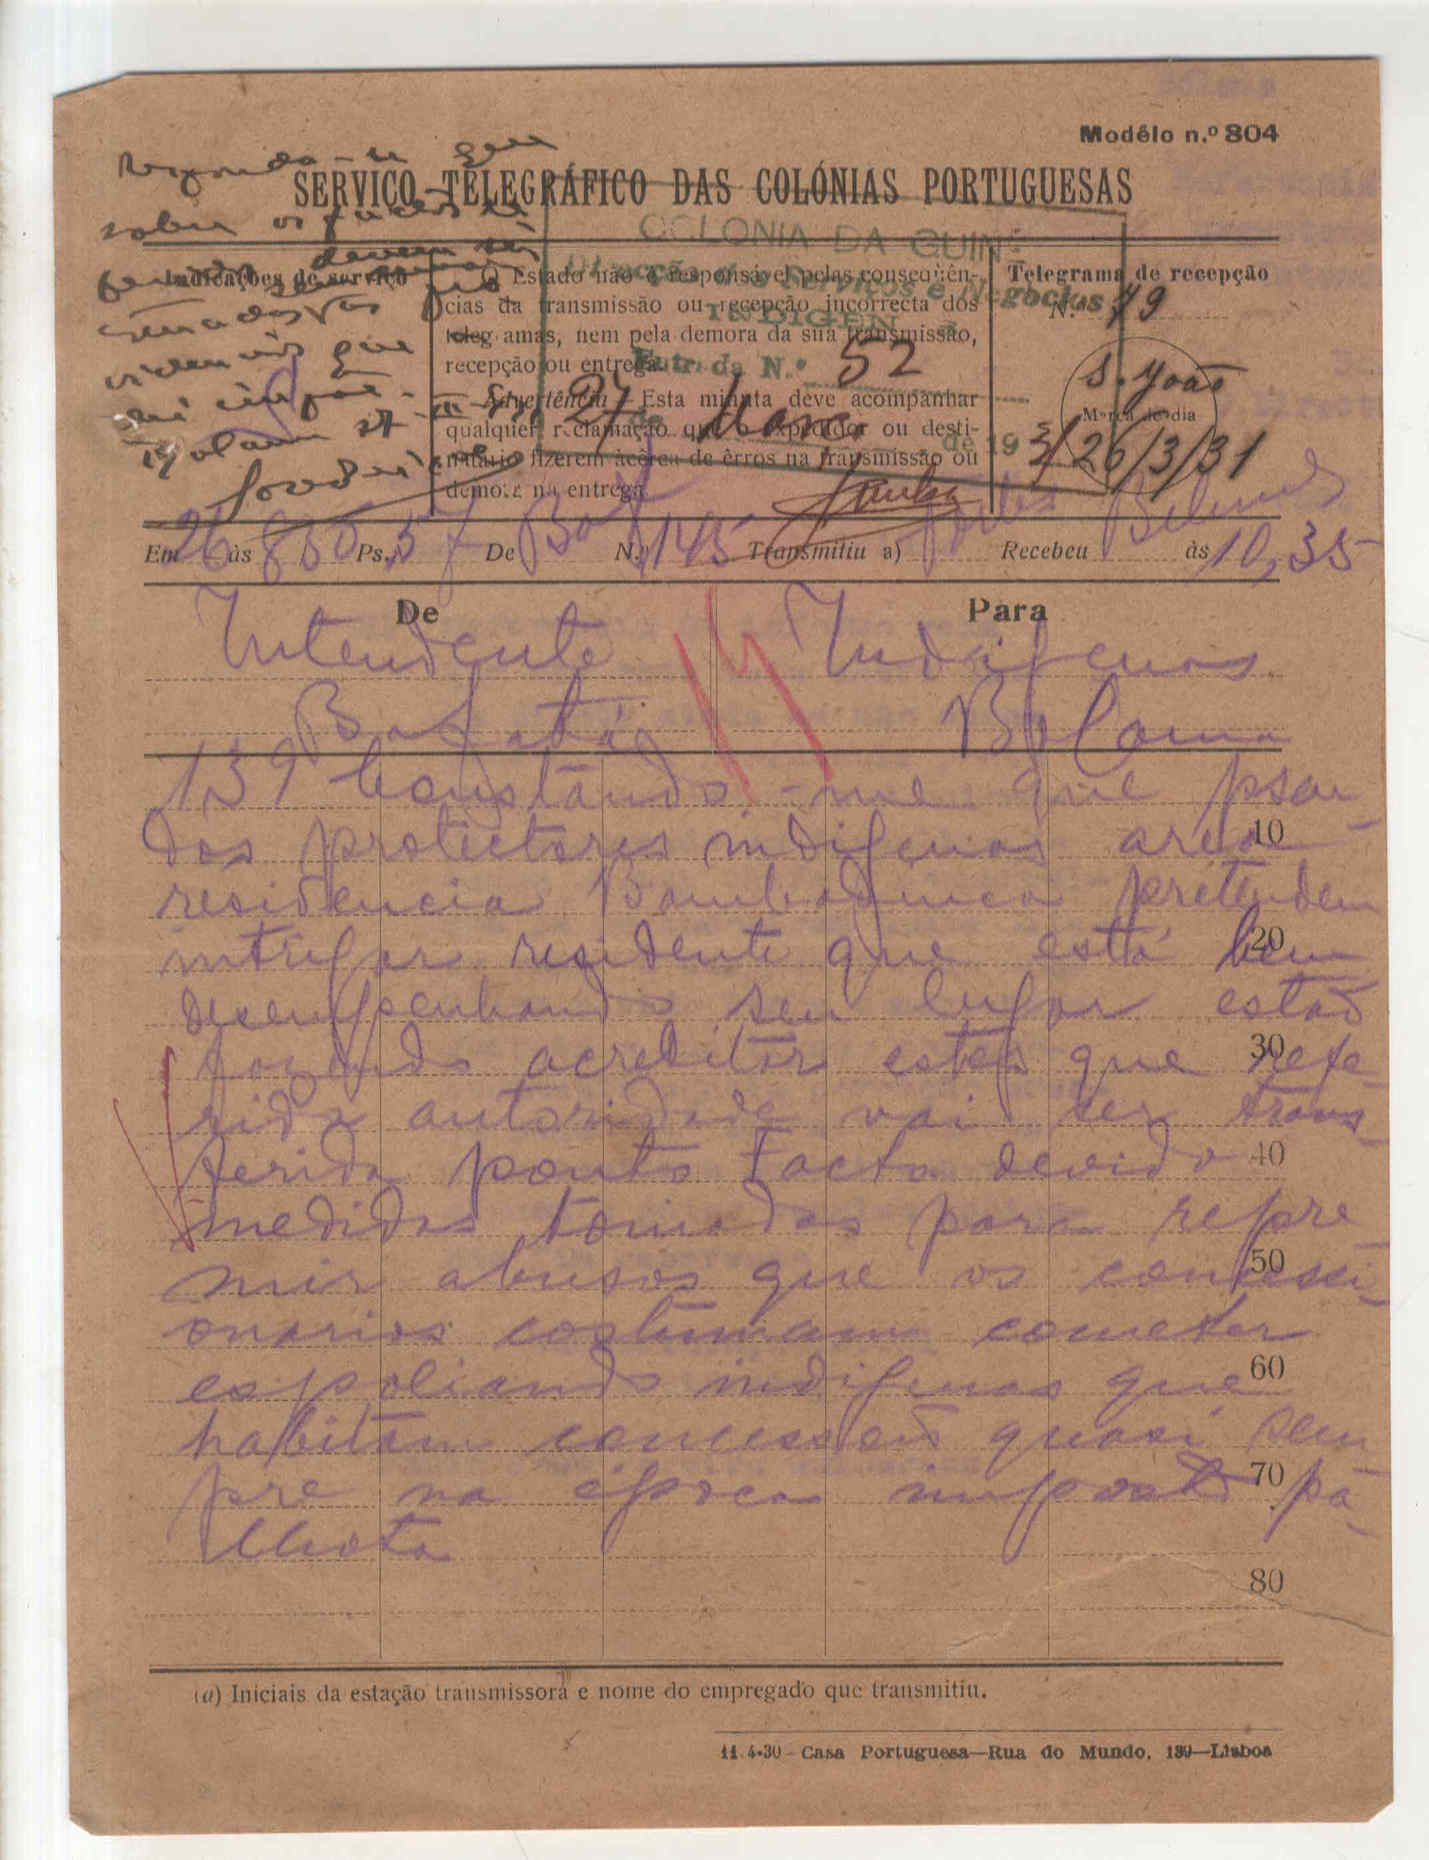 Modêlo n.º 804
Responda-se que
SERVIÇO TELEGRÁFICO DAS COLÓNIAS PORTUGUESAS
sobre os
COLONIA DA GUINÉ
Direcção dos Serviços e Negocios
INDIGENAS
Entrada N.º 52
27 de Março de 1931
Indicações de serviço
devem ser
que
Bolama 27-III-
O Estado não é responsável pelas conseqüên-
cias da transmissão ou recepção incorrecta dos
telegramas, nem pela demora da sua transmissão,
recepção ou entrega.
Advertência — Esta minuta deve acompanhar
qualquer reclamação que o expedidor ou desti-
natário fizerem àcêrca de êrros na transmissão ou
demora na entrega
Telegrama de recepção
N.º 79
S. João
Marca do dia
26/3/31
Em 26 às 850 Ps. 57 De Baf N.º 145 Transmitiu a) Recebeu às 10,35
De Para
Intendente Indigenas
Bafatá Bolama
139 Constando-me que psou
dos protectores indigenas area
10
residencia Bambadinca pretendem
intrigar residente que está bem
20
desempenhando seu lugar estão
fazendo acreditar estes que refe-
30
rida autoridade vai ser trans-
ferida ponto Facto devido
40
medidas tomadas para repre
mir abusos que os concessi-
50
onarios costumam cometer
espoliando indigenas que
60
habitam concessões quasi sem
pre na epoca imposto pa-
70
lhota
80
(a) Iniciais da estação transmissora e nome do empregado que transmitiu.
11-4-30 - Casa Portuguesa—Rua do Mundo, 139—Lisboa